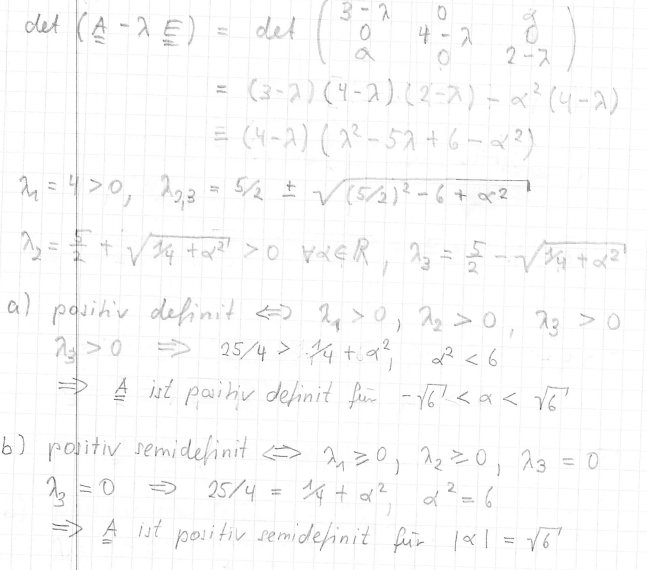 det (A - λ E) = det ( 3-λ 0 α
0 4-λ 0
α 0 2-λ )
= (3-λ)(4-λ)(2-λ) - α²(4-λ)
= (4-λ)(λ² - 5λ + 6 - α²)
λ₁ = 4 > 0, λ₂,₃ = 5/2 ± √((5/2)² - 6 + α²)
λ₂ = 5/2 + √(1/4 + α²) > 0 ∀α∈ℝ, λ₃ = 5/2 - √(1/4 + α²)
a) positiv definit ⇔ λ₁ > 0, λ₂ > 0, λ₃ > 0
λ₃ > 0 ⇒ 25/4 > 1/4 + α², α² < 6
⇒ A ist positiv definit für -√6 < α < √6
b) positiv semidefinit ⇔ λ₁ ≥ 0, λ₂ ≥ 0, λ₃ = 0
λ₃ = 0 ⇒ 25/4 = 1/4 + α², α² = 6
⇒ A ist positiv semidefinit für |α| = √6